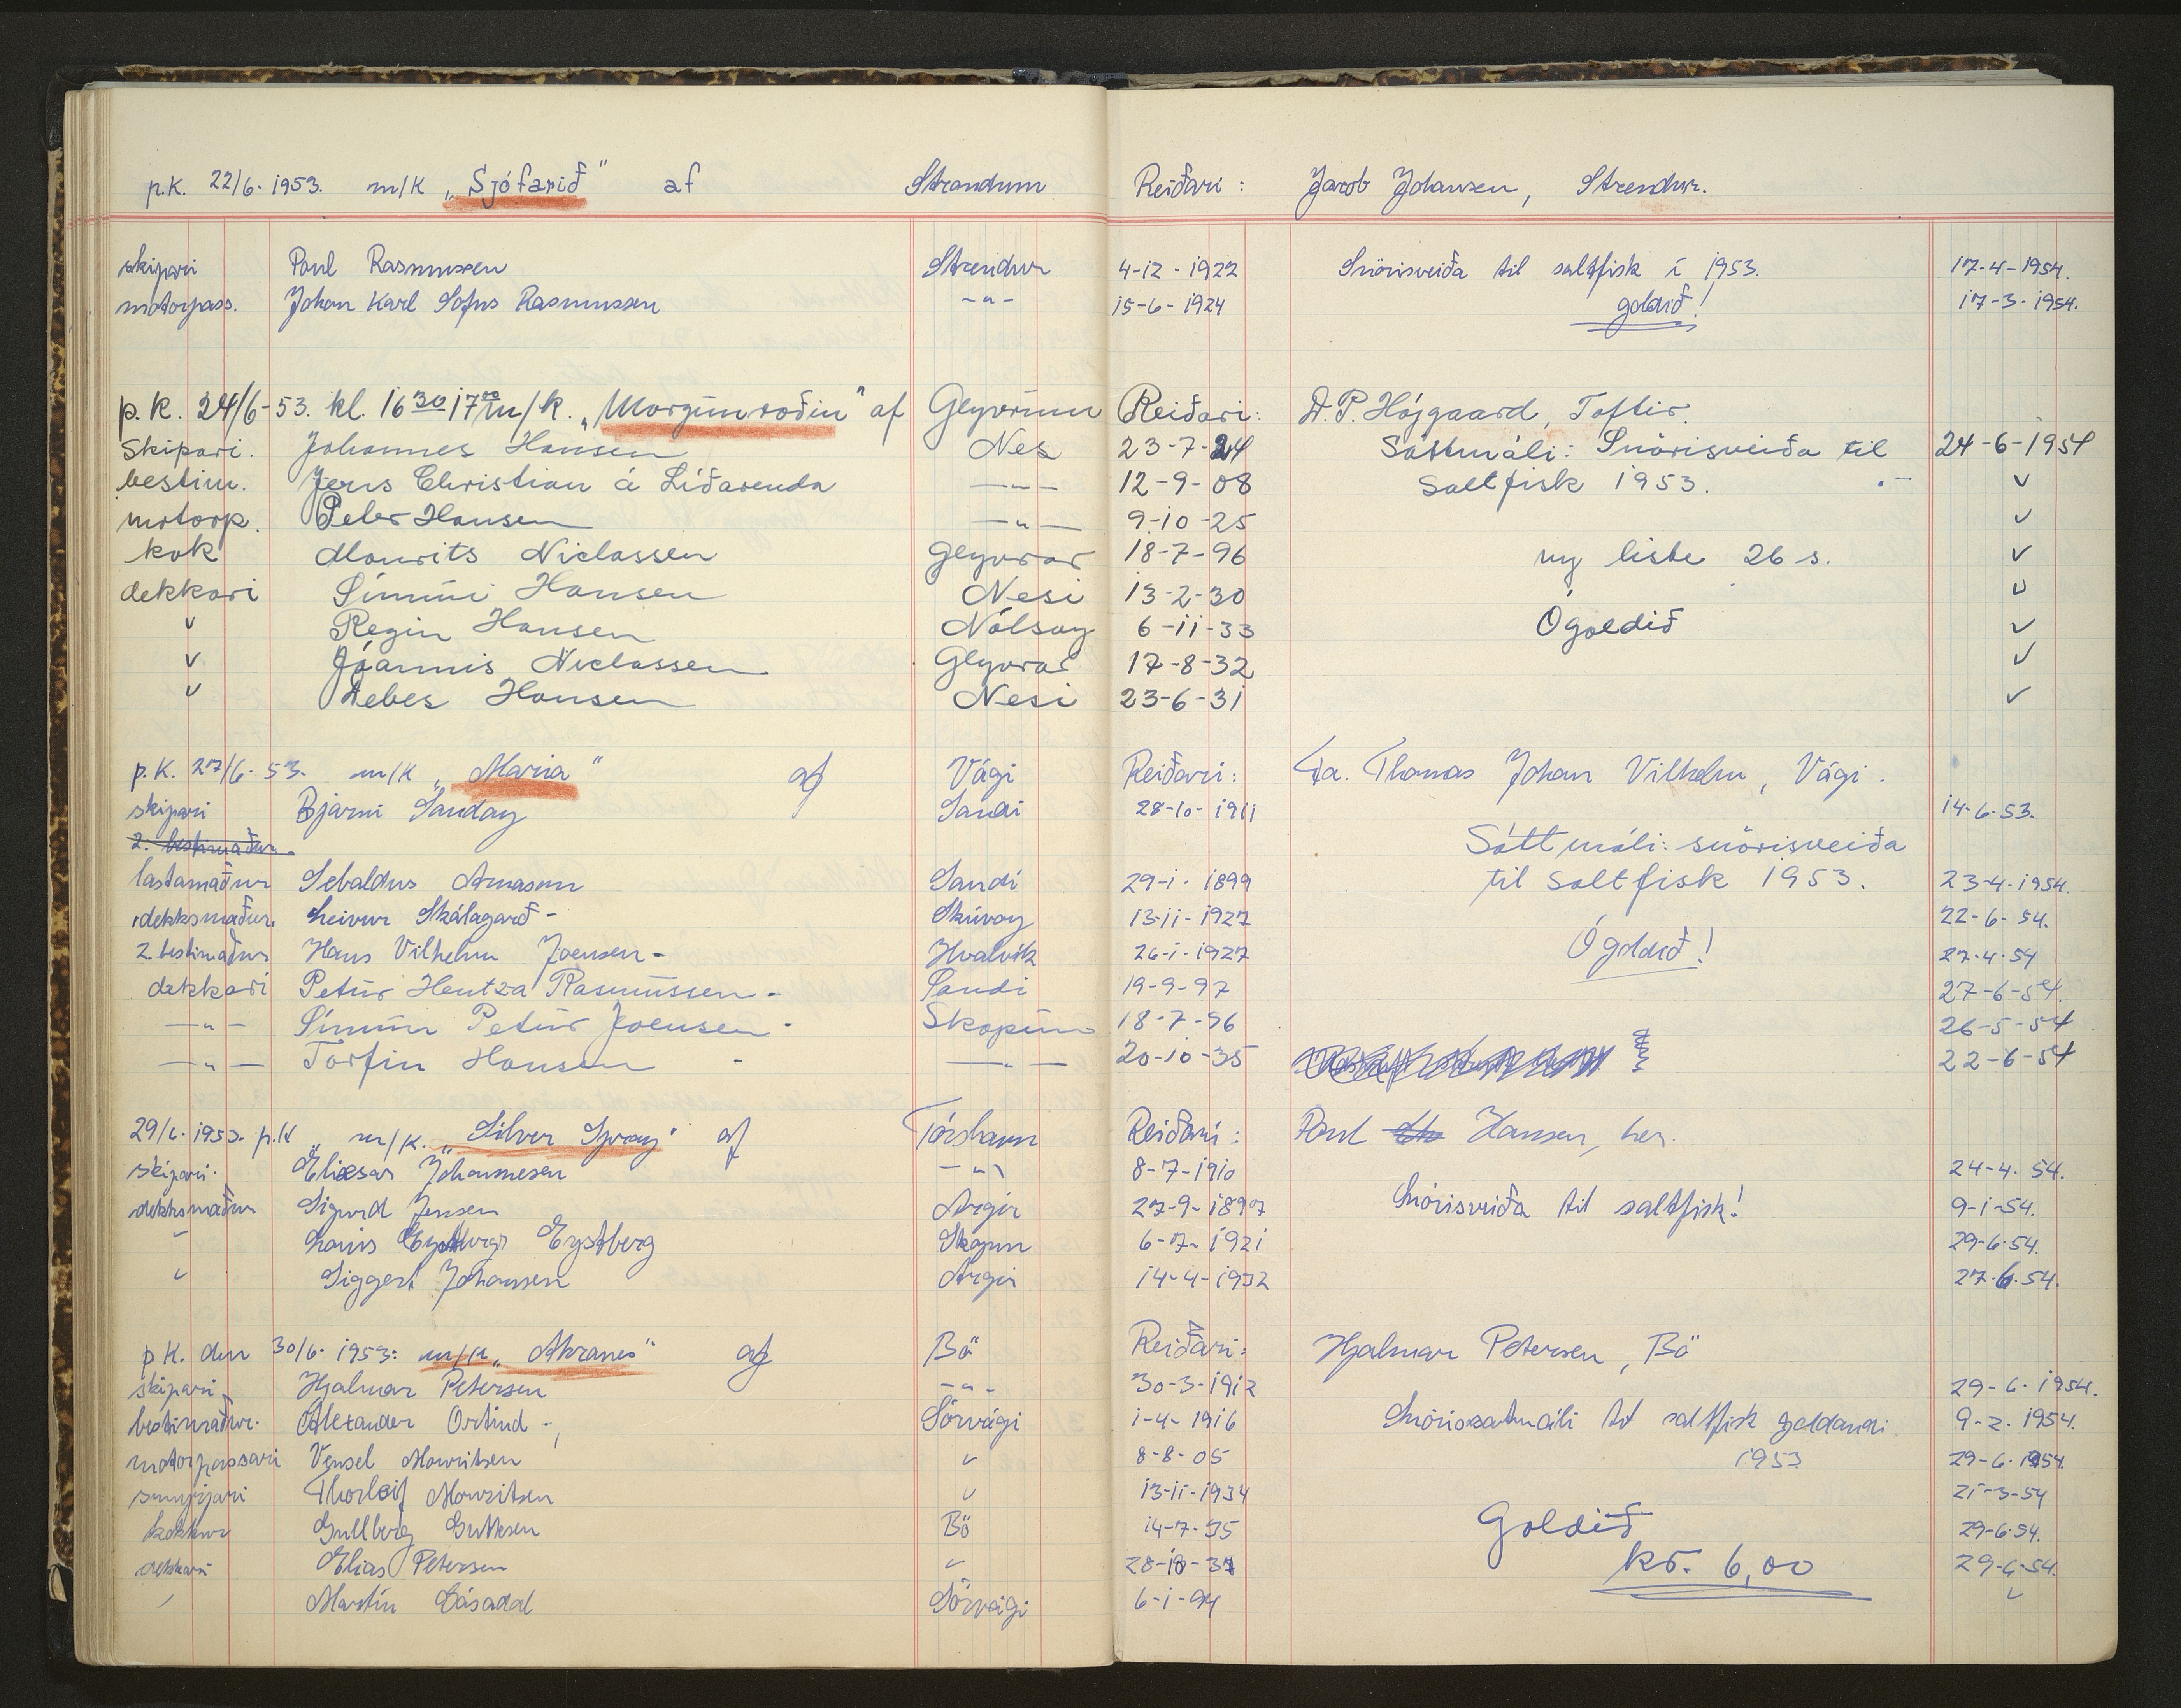 p.K. 22/6. 1953. m/K „Sjófarið" af Strandum Reiðari: Jacob Johansen, Strendur.
skipari Poul Rasmussen Strendur 4-12-1922 Snörisveiða til saltfisk í 1953. 17-4-1954.
motorpass. Johan Karl Sofus Rasmussen -"- 15-6-1924 goldið! 17-3-1954.
p.k. 24/6-53. kl. 16 30 17 00 m/k. „Morgunroðin" af Glyvrum Reiðari: D.P. Højgaard, Toftir.
Skipari. Johannes Hansen Nes 23-7-24 Sáttmáli: Snörisveiða til 24-6-1954
bestim. Jens Christian á Líðarenda -"- 12-9-08 Saltfisk 1953. "
motorp. Peter Hansen -"- 9-10-25 "
kok Maurits Niclassen Glyvrar 18-7-96 ny liste 26 s. "
dekkari Símun Hansen Nesi 13-2-30 "
" Regin Hansen Nólsoy 6-11-33 Ógoldið "
" Jóannis Niclassen Glyvrar 17-8-32 "
" Debes Hansen Nesi 23-6-31 "
p.K. 27/6-53. m/K „Maria" af Vági Reiðari: Fa. Thomas Johan Vilhelm, Vági.
skipari Bjarni Sanday Sandi 28-10-1911 14-6.53.
2. bestimaður Sáttmáli: snörisveiða
lastamaður Sebaldus Arnason Sandi 29-1-1899 til saltfisk 1953. 23-4-1954.
dekksmaður. Leivur Skálagarð - Skúvoy 13-11-1927 22-6-54.
2. bestimaður Hans Vilhelm Joensen - Hvalvík 26-1-1927 Ógoldið! 27-4-54
dekkari Petur Hentza Rasmussen - Sandi 19-9-97 27-6-54.
-"- Símun Petur Joensen - Skopun 18-7-96 26-5-54
-"- Torfin Hansen - -"- 20-10-35 22-6-54
29/6. 1953. p.K „ m/k. „Silver Spray" af Tórshavn Reiðari: Poul Hansen, her.
skipari. Eliesar Johannesen -"- 8-7-1910 24-4-54.
dekksmaður Sigurd Jensen Argir 27-9-1897 Snörisveiða til saltfisk! 9-1-54.
" Louis Eystberg Skopun 6-7-1921 29-6-54.
" Siggert Johansen Argir 14-4-1932 27-6-54.
p K. den 30/6. 1953: m/k „Akranes" af Bö Reiðari: Hjalmar Petersen, Bö
skipari Hjalmar Petersen -"- 30-3-1912 29-6-1954.
bestimaður. Alexander Ortind - Sörvági 1-4-1916 Snörisáttmáli til saltfisk galdandi 9-2-1954.
motorpassari Vensel Mouritsen " 8-8-05 1953 29-6-1954.
smyrjari Thorleif Mouritsen " 13-11-1934 21-3-54
kokkur Gullberg Guttesen Bö 14-7-35 Goldið 29-6-54.
dekkari Elias Petersen " 28-10-31 kr. 6,00 29-6-54.
" Martin Gásadal Sörvági 6-1-94 "